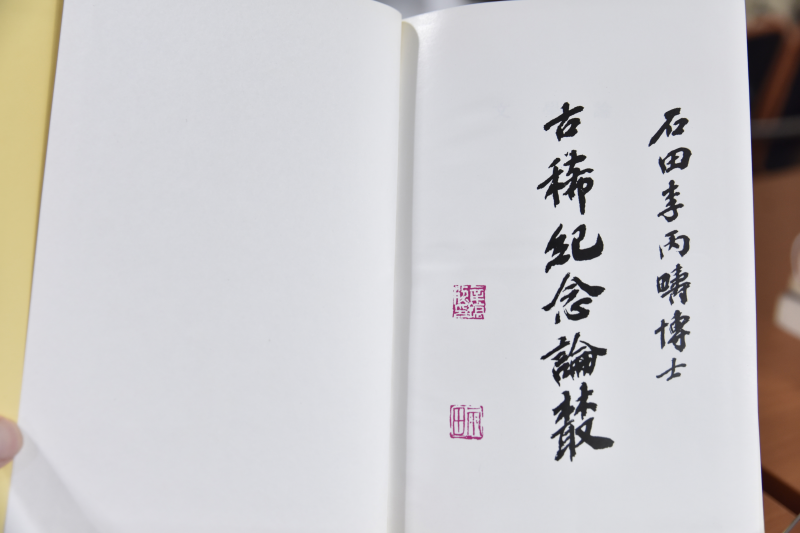 石田李丙疇博士
古稀紀念論叢
雨田